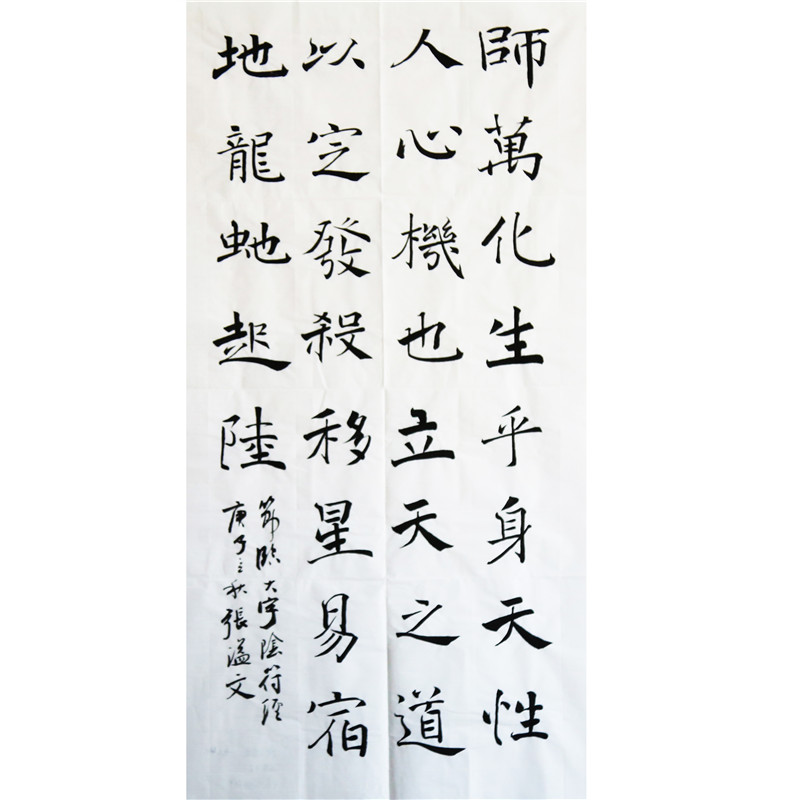 師萬化生乎身天性
人心機也立天之道
以定發殺移星易宿
地龍虵起陸
節臨大字陰符經
庚子之秋張溢文